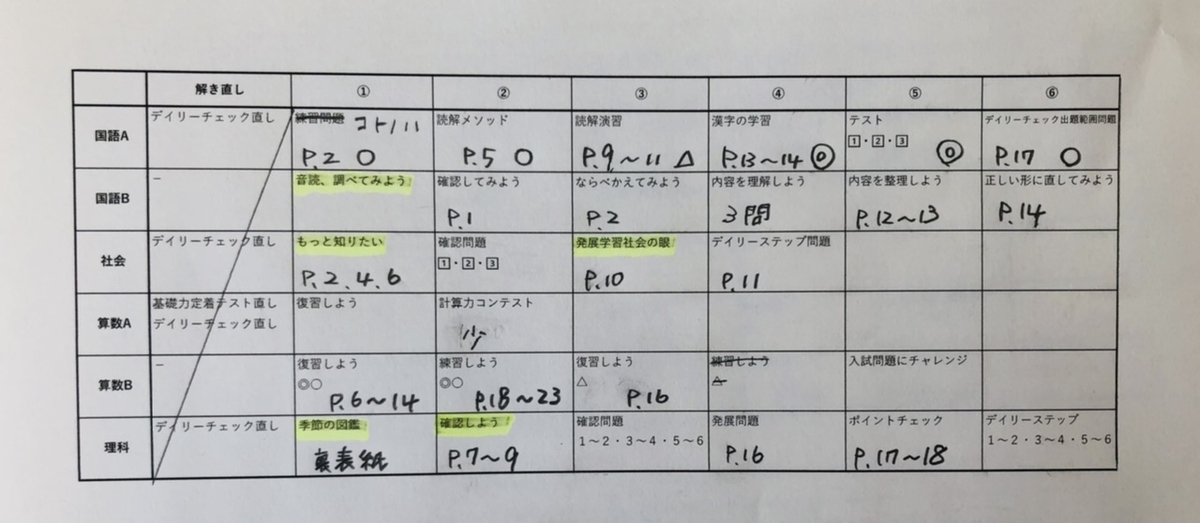 解き直し ① ② ③ ④ ⑤ ⑥
国語A
デイリーチェック直し
練習問題 コトノハ
P.2 ○
読解メソッド
P.5 ○
読解演習
P.9～11 △
漢字の学習
P.13～14 ◎
テスト
1・2・3
◎
デイリーチェック出題範囲問題
P.17 ○
国語B
－
音読、調べてみよう
確認してみよう
P.1
ならべかえてみよう
P.2
内容を理解しよう
3問
内容を整理しよう
P.12～13
正しい形に直してみよう
P.14
社会
デイリーチェック直し
もっと知りたい
P.2.4.6
確認問題
1・2・3
発展学習社会の眼
P.10
デイリーステップ問題
P.11
算数A
基礎力定着テスト直し
デイリーチェック直し
復習しよう
計算力コンテスト
算数B
－
復習しよう
◎○
P.6～14
練習しよう
◎○
P.18～23
復習しよう
△
P.16
練習しよう
△
入試問題にチャレンジ
理科
デイリーチェック直し
季節の図鑑
裏表紙
確認しよう
P.7～9
確認問題
1～2・3～4・5～6
発展問題
P.16
ポイントチェック
P.17～18
デイリーステップ
1～2・3～4・5～6